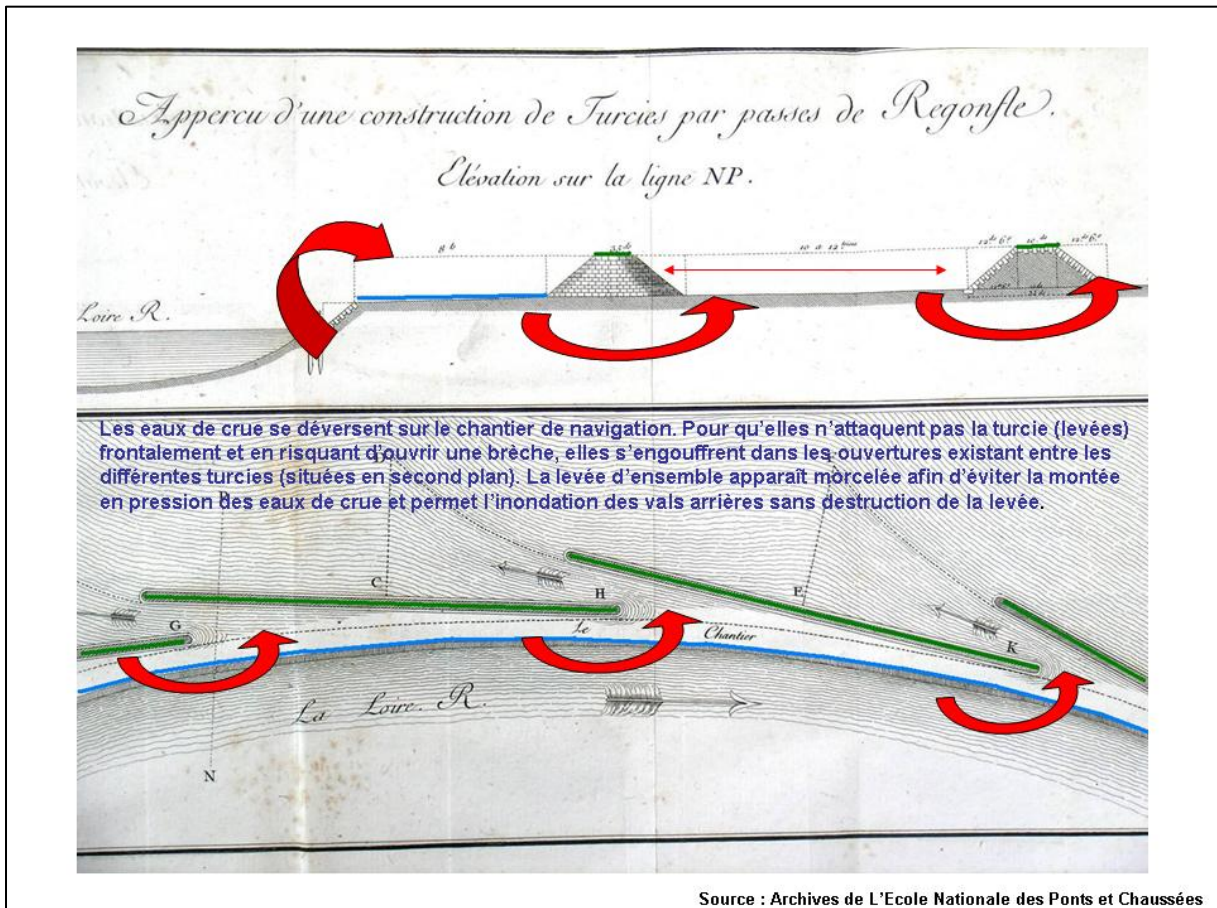 Appercu d'une construction de Turcies par passes de Regonfle.
Elévation sur la ligne NP.
8 t
10 a 12 toises
12 ds 6 p
10 ds
12 ds 6 p
Loire R.
Les eaux de crue se déversent sur le chantier de navigation. Pour qu'elles n'attaquent pas la turcie (levées)
frontalement et en risquant d'ouvrir une brèche, elles s'engouffrent dans les ouvertures existant entre les
différentes turcies (situées en second plan). La levée d'ensemble apparaît morcelée afin d'éviter la montée
en pression des eaux de crue et permet l'inondation des vals arrières sans destruction de la levée.
C
H
E
G
Le Chantier
K
La Loire. R.
N
Source : Archives de L'Ecole Nationale des Ponts et Chaussées